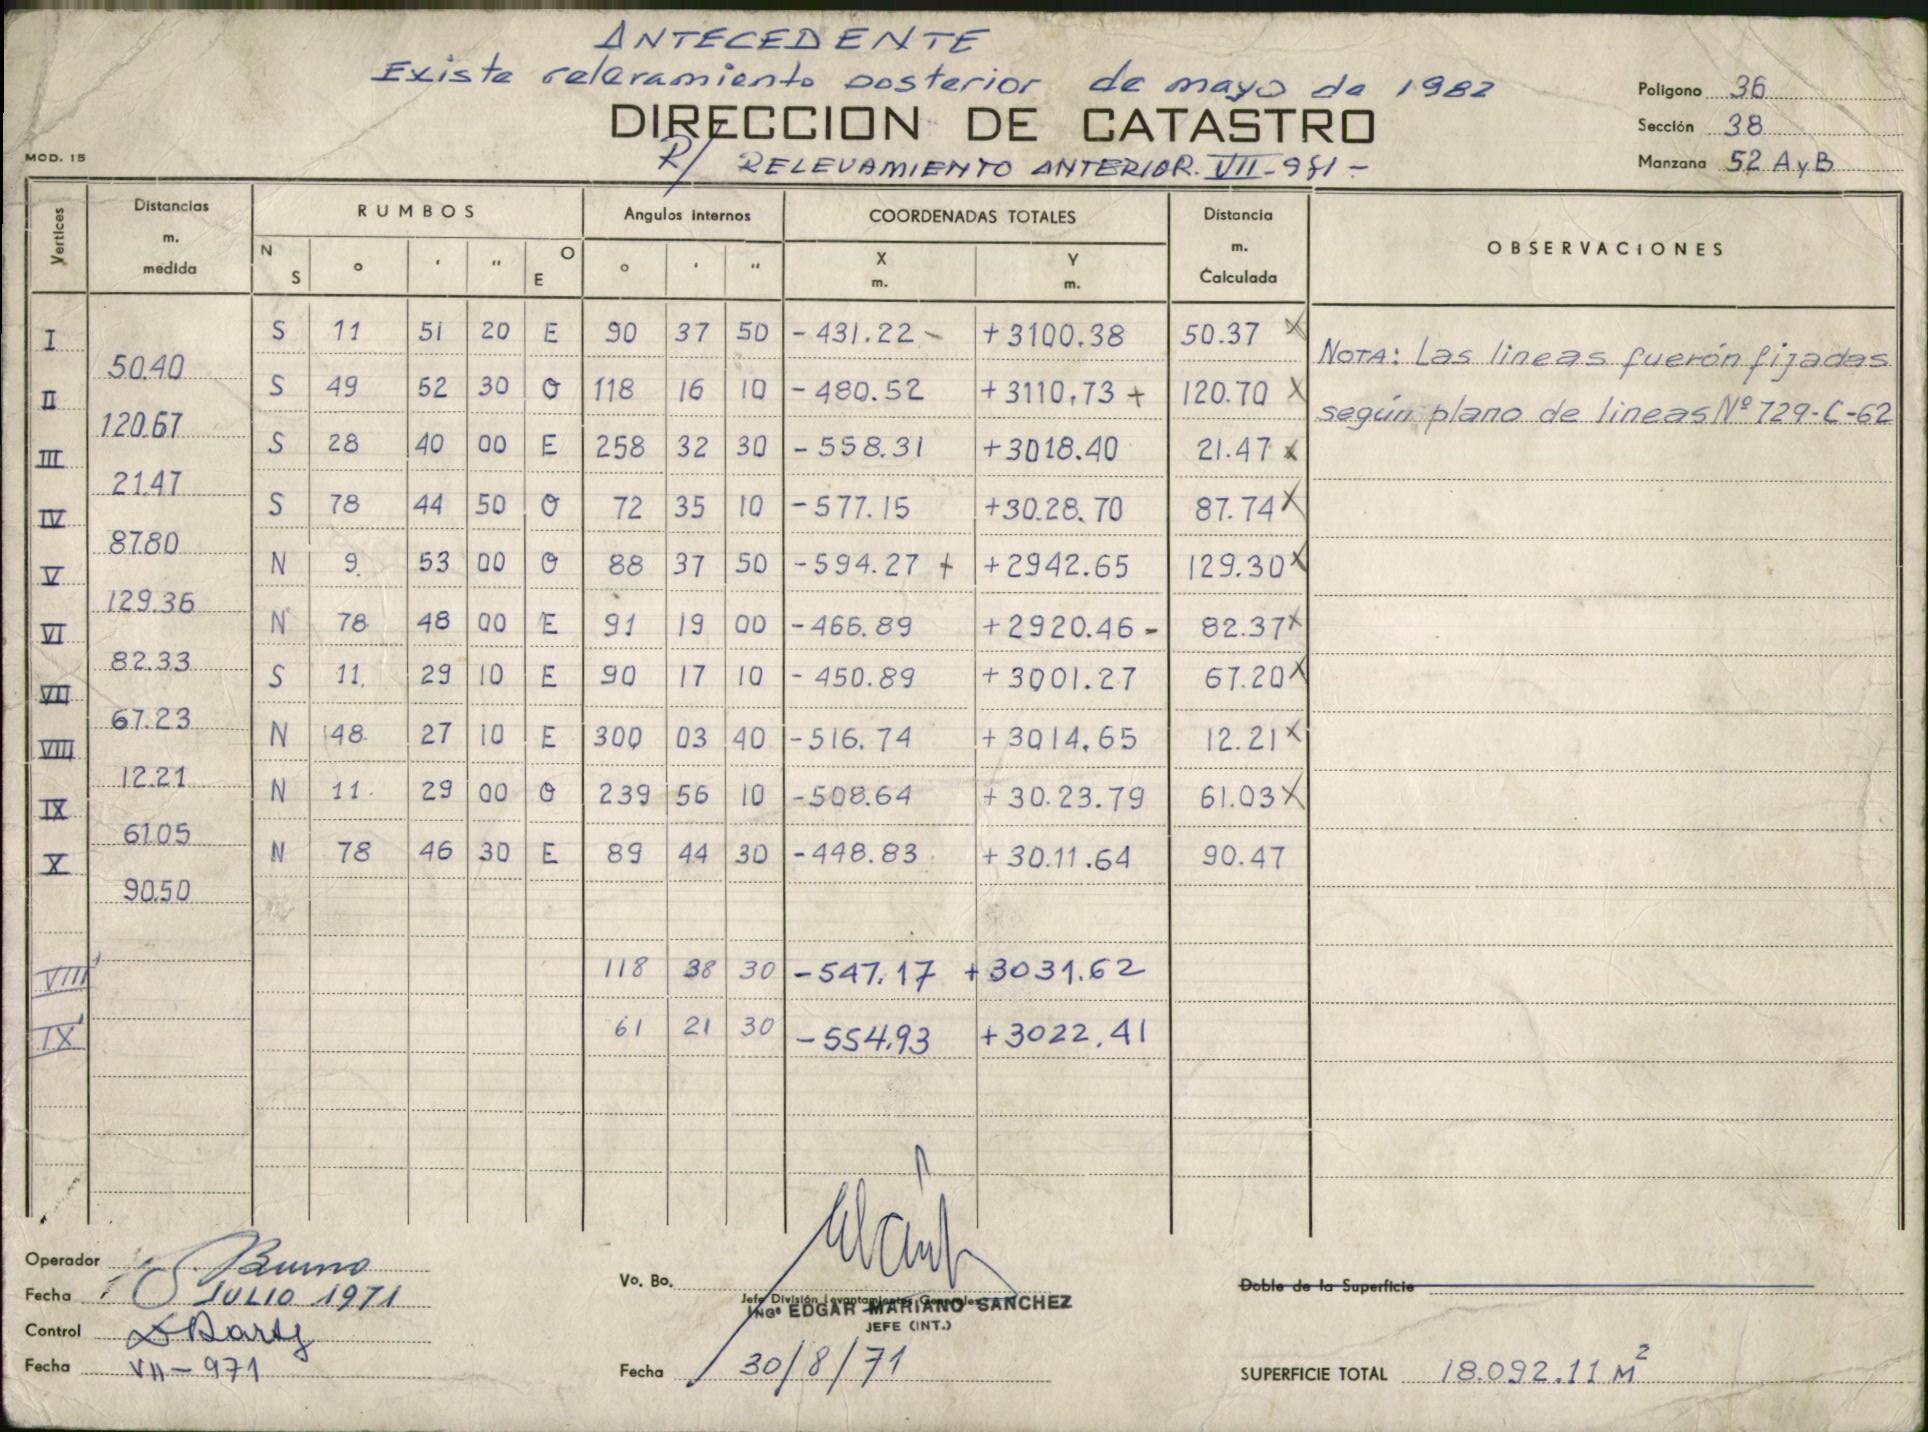 ANTECEDENTE
Existe relevamiento posterior de mayo de 1982
DIRECCION DE CATASTRO
R/ RELEVAMIENTO ANTERIOR. VII-981-
MOD. 15
Poligono 36
Sección 38
Manzana 52 A y B
Vertices Distancias m. medida RUMBOS Angulos internos COORDENADAS TOTALES Distancia m. Calculada OBSERVACIONES
N S ° ' " O E ° ' " X m. Y m.
I S 11 51 20 E 90 37 50 -431.22 - +3100.38 50.37 X
50.40
II S 49 52 30 O 118 16 10 -480.52 +3110.73 + 120.70 X
120.67
III S 28 40 00 E 258 32 30 -558.31 +3018.40 21.47 X
21.47
IV S 78 44 50 O 72 35 10 -577.15 +30.28.70 87.74 X
87.80
V N 9. 53 00 O 88 37 50 -594.27 + +2942.65 129.30 X
129.36
VI N 78 48 00 E 91 19 00 -466.89 +2920.46 - 82.37 X
82.33
VII S 11. 29 10 E 90 17 10 -450.89 +3001.27 67.20 X
67.23
VIII N 48. 27 10 E 300 03 40 -516.74 +3014.65 12.21 X
12.21
IX N 11. 29 00 O 239 56 10 -508.64 +30.23.79 61.03 X
61.05
X N 78 46 30 E 89 44 30 -448.83 +30.11.64 90.47
90.50
VIII' 118 38 30 -547.17 +3031.62
IX' 61 21 30 -554.93 +3022.41
NOTA: Las lineas fuerón fijadas
según plano de lineas Nº 729-C-62
Operador Bruno
Fecha JULIO 1971
Control
Fecha VII-971
Vo. Bo.
Jefe División Levantamientos Generales
INGº EDGAR MARIANO SANCHEZ
JEFE (INT.)
Fecha 30/8/71
Doble de la Superficie
SUPERFICIE TOTAL 18.092.11 M²